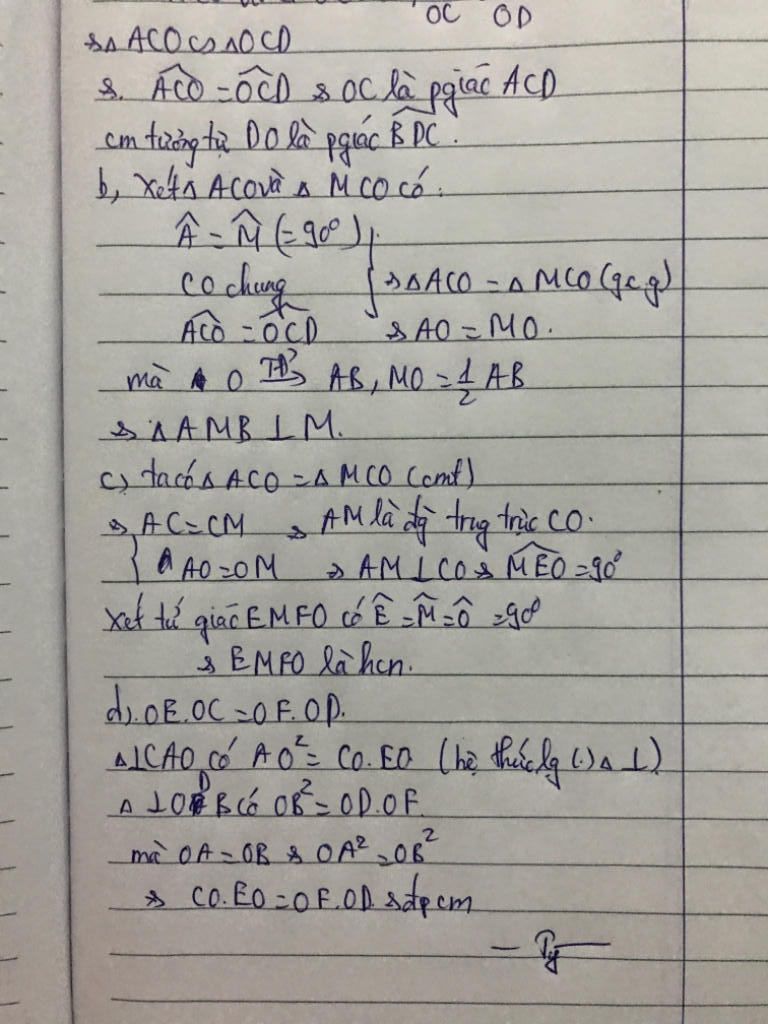 OC OD
=> Δ ACO ∽ Δ OCD
=> \widehat{ACO} = \widehat{OCD} => OC là pgiác ACD
cm tương tự DO là pgiác \widehat{BDC}.
b, Xét Δ ACO và Δ MCO có:
Â = M̂ (= 90°)
CO chung } => Δ ACO = Δ MCO (g c g)
\widehat{ACO} = \widehat{OCD} => AO = MO.
mà O TĐ AB, MO = 1/2 AB
=> Δ AMB ⊥ M.
c) ta có Δ ACO = Δ MCO (cmt)
=> { AC = CM => AM là đg trug trực CO.
AO = OM => AM ⊥ CO => \widehat{MEO} = 90°
Xét tứ giác EMFO có Ê = M̂ = Ô = 90°
=> EMFO là hcn.
d). OE.OC = OF.OD.
Δ⊥CAO có AO² = CO.EO (hệ thức lg (.) Δ ⊥)
Δ ⊥ODB có OB² = OD.OF.
mà OA = OB => OA² = OB²
=> CO.EO = OF.OD => đpcm